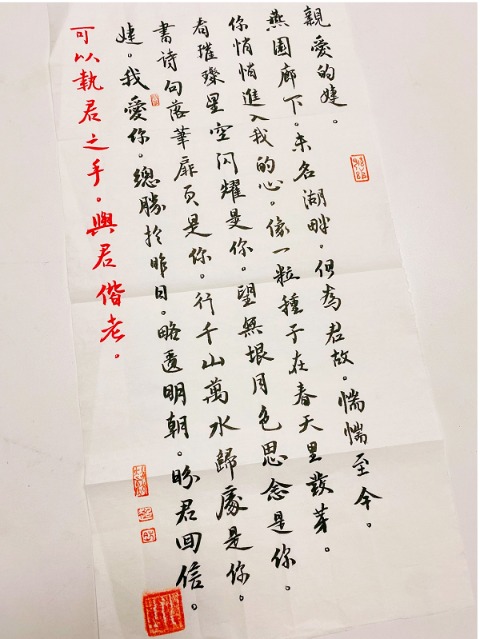 親愛的婕。
燕園廊下。未名湖畔。但為君故。惴惴至今。
你悄悄進入我的心。像一粒種子在春天里發芽。
看璀璨星空閃耀是你。望無垠月色思念是你。
書诗句落筆扉頁是你。行千山萬水歸處是你。
婕。我愛你。總勝於昨日。略匱明朝。盼君回信。
可以執君之手。與君偕老。